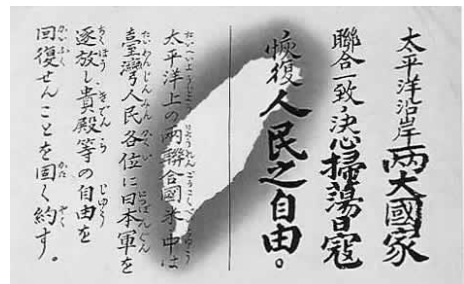 太平洋沿岸兩大國家
聯合一致決心掃蕩日寇
恢復人民之自由。
太平洋上の兩聯合國米中は
臺灣人民各位に日本軍を
逐放し貴殿等の自由を
回復せんことを固く約す。